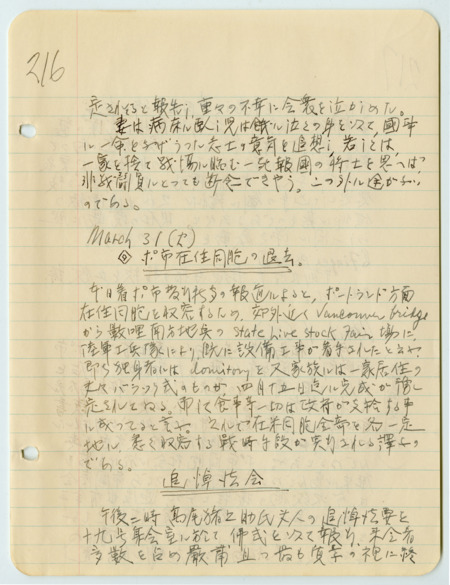 216
定されると報告し、重々の不幸に会衆を泣かしめた。
妻は病床に臥し児は餓に泣くの身を以て、國事
に一命をささげうつた志士の意気を追想し、若しくは、
一家を捨て戦場に臨む一死報國の将士を思へば
非戦闘員にとつても断念できやう。二つ
のである。
March 31 (火)
◎ ポ市在住同胞の退去。
本日着ポ市發行新聞の報道によると、ポートランド方面
在住同胞を収容するため、郊外近く Vancouver bridge
から数哩南方地点の State Live stock Fair 場に、
陸軍工兵隊により既に設備工事が着手されたと云ふ
即ち独身者には domitory と又家族には一家居住の
バラック式のものが四月十五日迄に完成が豫
定されとる。即ち食事等一切は政府が支給する事
に成つてると言ふ。これで在米同胞全部を各一定
地に、悉く収容する戦時手段が実行される譯なの
である。
追悼法会
午後二時 高尾猪之助氏夫人の追悼法要を
十九号集会室に於て 佛式を以て執り、来会者
多数を占め厳粛 且つ最も真摯の裡に終